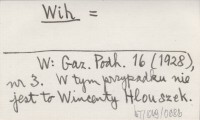 Wih =
W: Gaz. Podh. 16 (1928),
nr 3. W tym przypadku nie
jest to Wincenty Hłouszek.